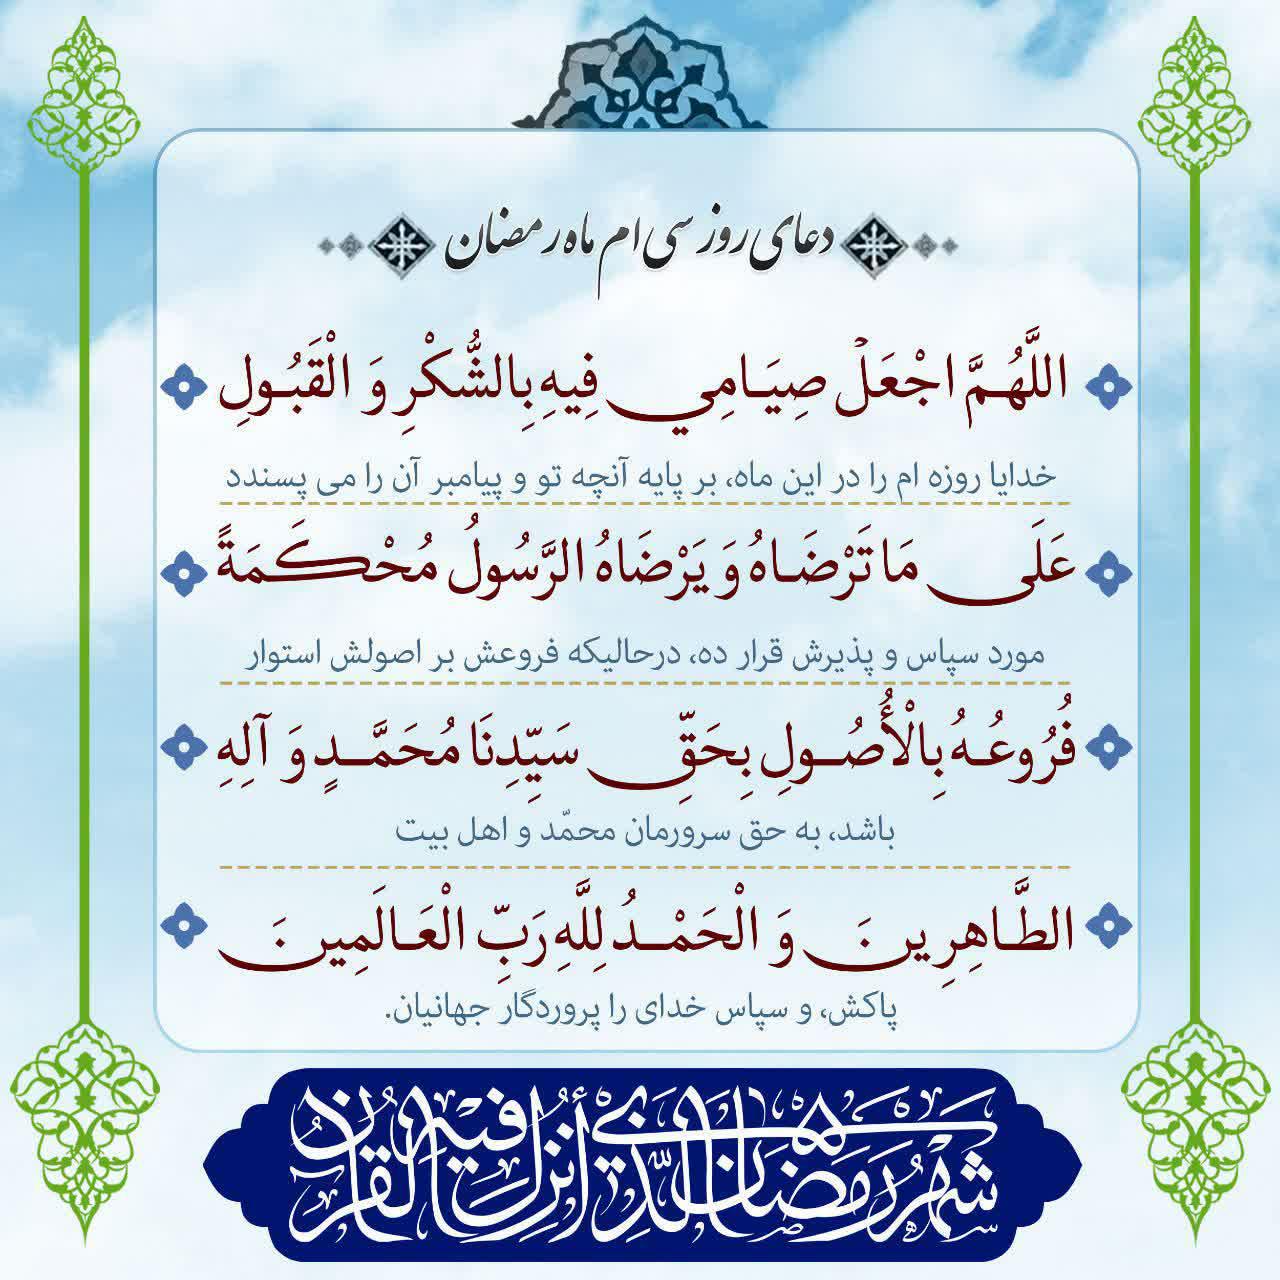 دعای روز سی ام ماه رمضان
اللَّهُمَّ اجْعَلْ صِيَامِي فِيهِ بِالشُّكْرِ وَ الْقَبُولِ
خدایا روزه ام را در این ماه، بر پایه آنچه تو و پیامبر آن را می پسندد
عَلَى مَا تَرْضَاهُ وَ يَرْضَاهُ الرَّسُولُ مُحْكَمَةً
مورد سپاس و پذیرش قرار ده، درحالیکه فروعش بر اصولش استوار
فُرُوعُهُ بِالْأُصُولِ بِحَقِّ سَيِّدِنَا مُحَمَّدٍ وَ آلِهِ
باشد، به حق سرورمان محمّد و اهل بیت
الطَّاهِرِينَ وَ الْحَمْدُ لِلَّهِ رَبِّ الْعَالَمِينَ
پاکش، و سپاس خدای را پروردگار جهانیان.
شهر رمضان الذي أنزل فيه القرآن